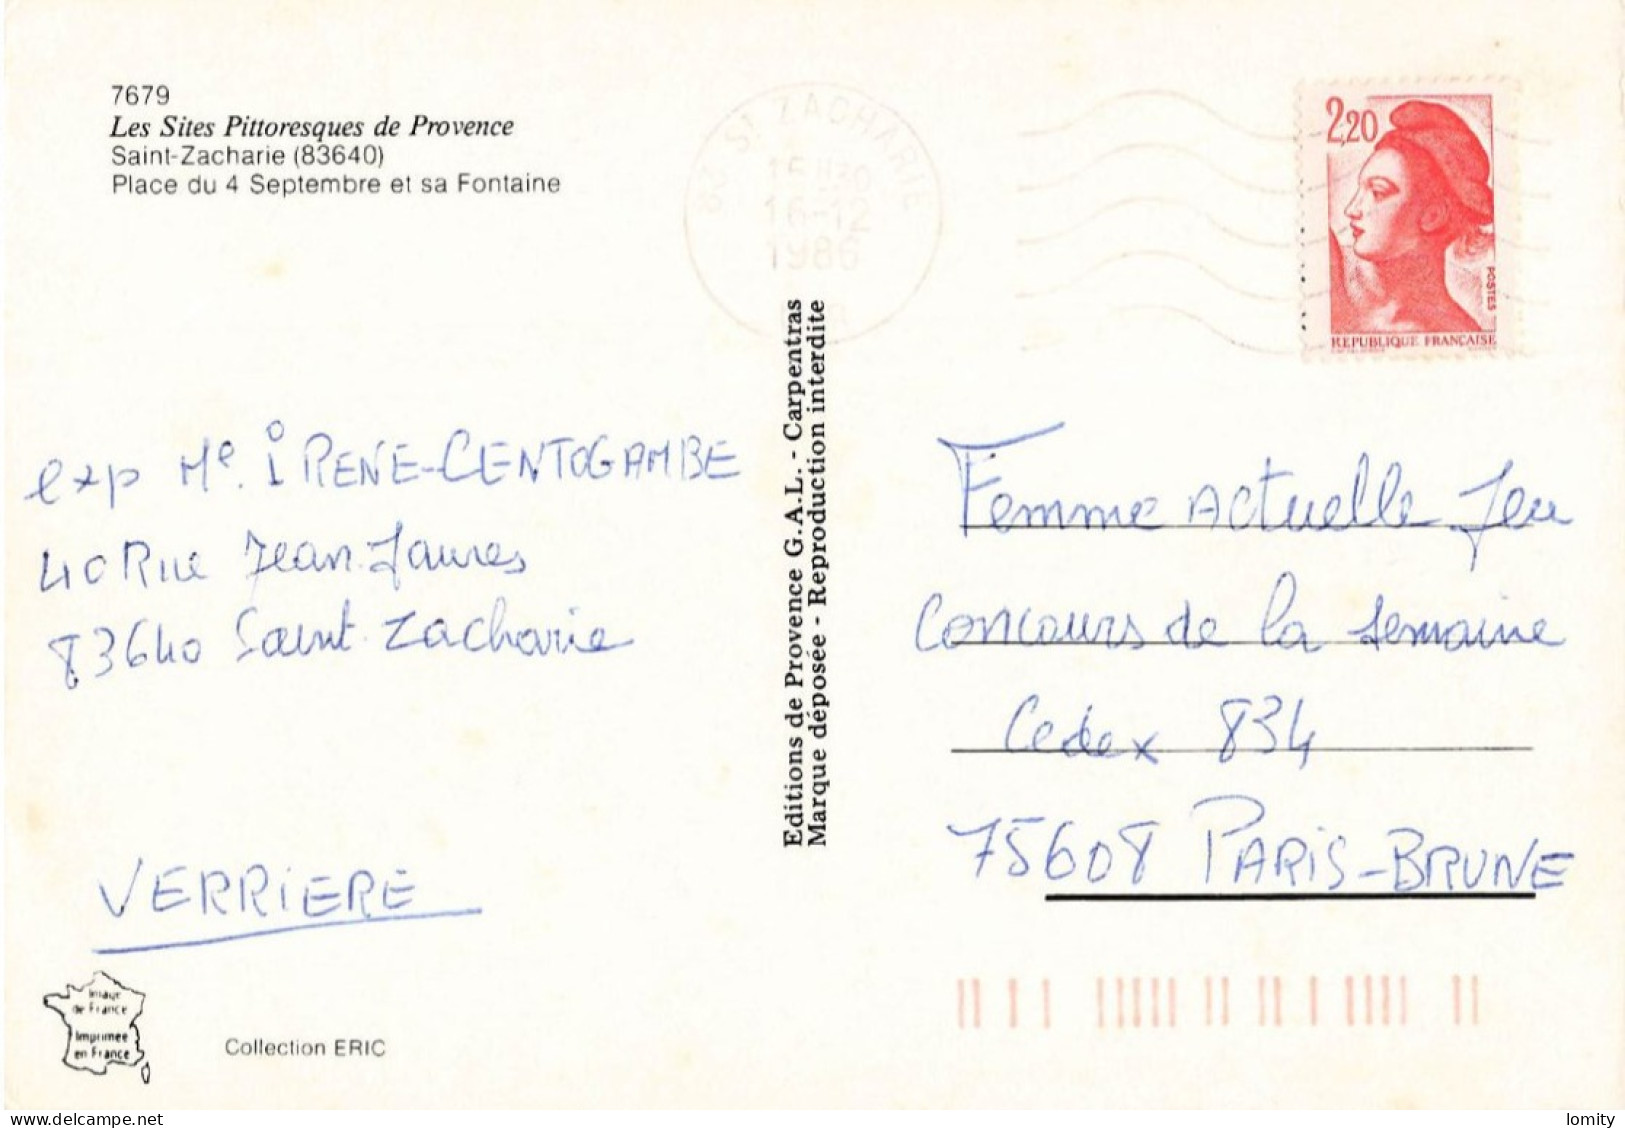 7679
Les Sites Pittoresques de Provence
Saint-Zacharie (83640)
Place du 4 Septembre et sa Fontaine
83 ST ZACHARIE
15H30
16-12
1986
2,20
POSTES
REPUBLIQUE FRANÇAISE
Editions de Provence G.A.L. - Carpentras
Marque déposée - Reproduction interdite
exp Me. iRENE-CENTOGAMBE
40 Rue Jean Jaures
83640 Saint Zacharie
VERRIERE
Femme Actuelle Jeu
Concours de la semaine
Cedex 834
75608 PARiS-BRUNE
Image
de France
Imprimée
en France
Collection ERIC
delcampe.net
lomity